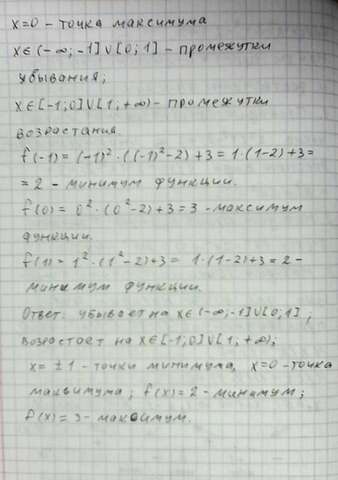 x=0 - точка максимума
x∈(-∞;-1]∪[0;1] - промежутки
убывания;
x∈[-1;0]∪[1;+∞) - промежутки
возрастания.
f(-1) = (-1)²·((-1)²-2)+3 = 1·(1-2)+3=
= 2 - минимум функции.
f(0) = 0²·(0²-2)+3=3 - максимум
функции.
f(1) = 1²·(1²-2)+3 = 1·(1-2)+3=2 -
минимум функции.
Ответ: убывает на x∈(-∞;-1]∪[0;1],
возрастает на x∈[-1;0]∪[1;+∞);
x= ±1 - точки минимума, x=0 - точка
максимума; f(x)=2 - минимум;
f(x)=3 - максимум.